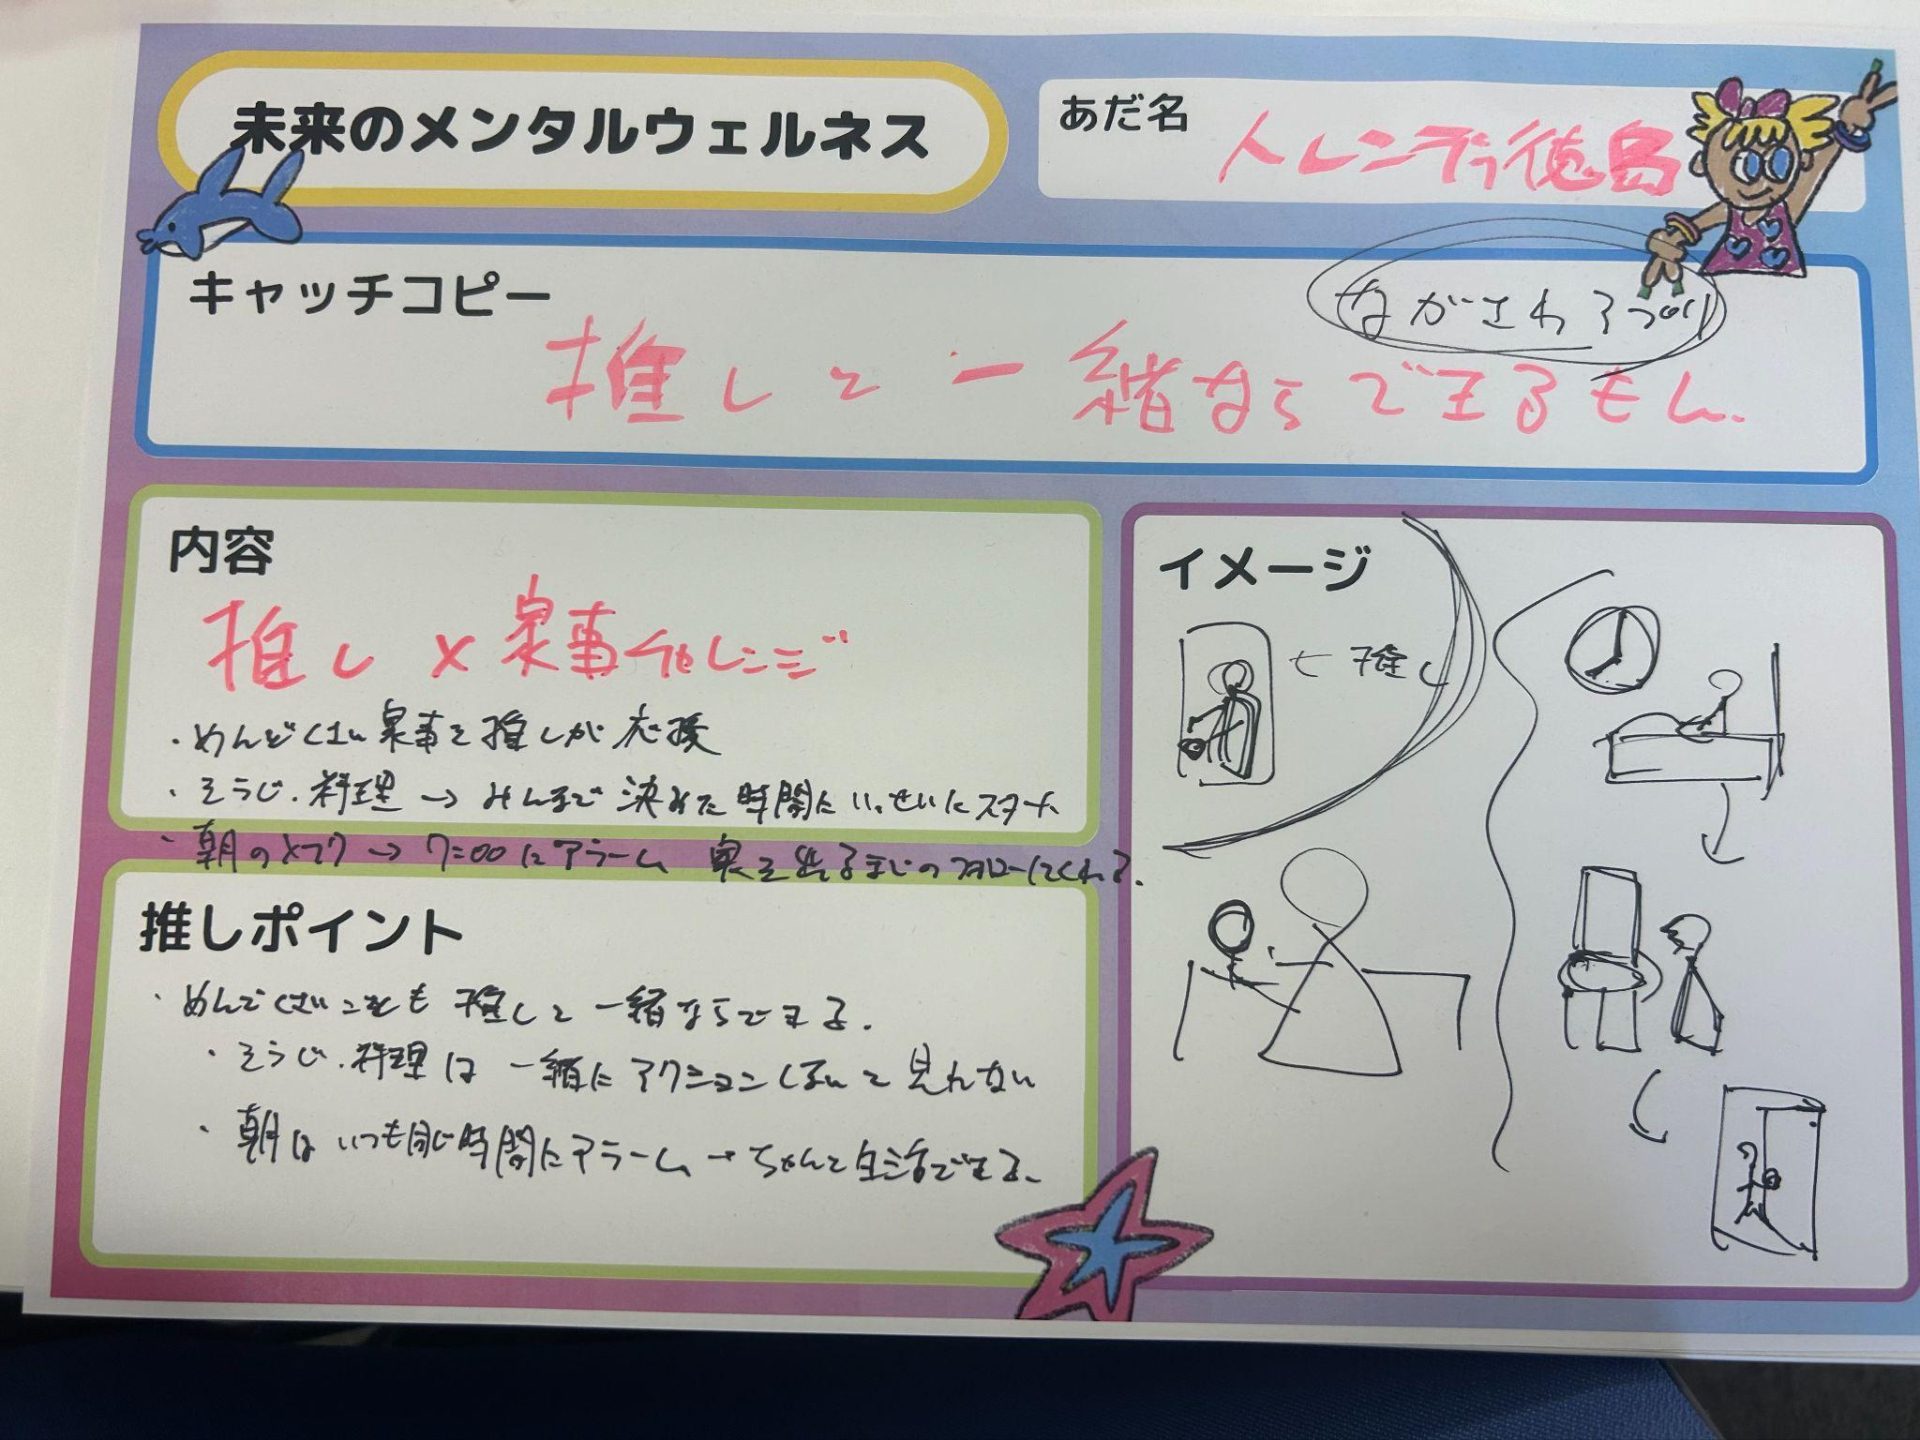 未来のメンタルウェルネス
あだ名
トレンディ徳島
キャッチコピー
推しと一緒ならできるもん.
内容
推し×家事チャレンジ
・めんどくさい家事を推しが応援
・そうじ.料理→みんなで決めた時間にいっせいにスタート
・朝の→7:00にアラーム 家を出るまでのフォローしてくれる.
推しポイント
・めんどくさいことも推しと一緒ならできる.
・そうじ.料理は一緒にアクションしないと見れない
・朝はいつも同じ時間にアラーム→ちゃんと生活できる.
イメージ
←推し